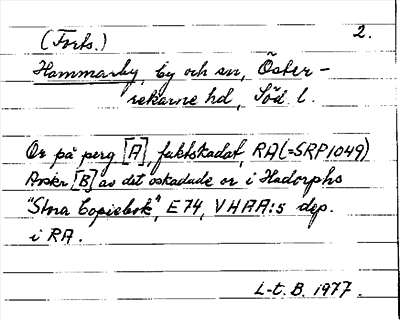 (Forts.) 2.
Hammarby, by och sn, Öster-
rekarne hd, Söd l.
Or på perg [A], fuktskadat, RA (=SRP 1049)
Avskr [B] av det oskadade or i Hadorphs
"Stora Copiebok", E 74, VHAA:s dep.
i RA.
L-t. B. 1977.